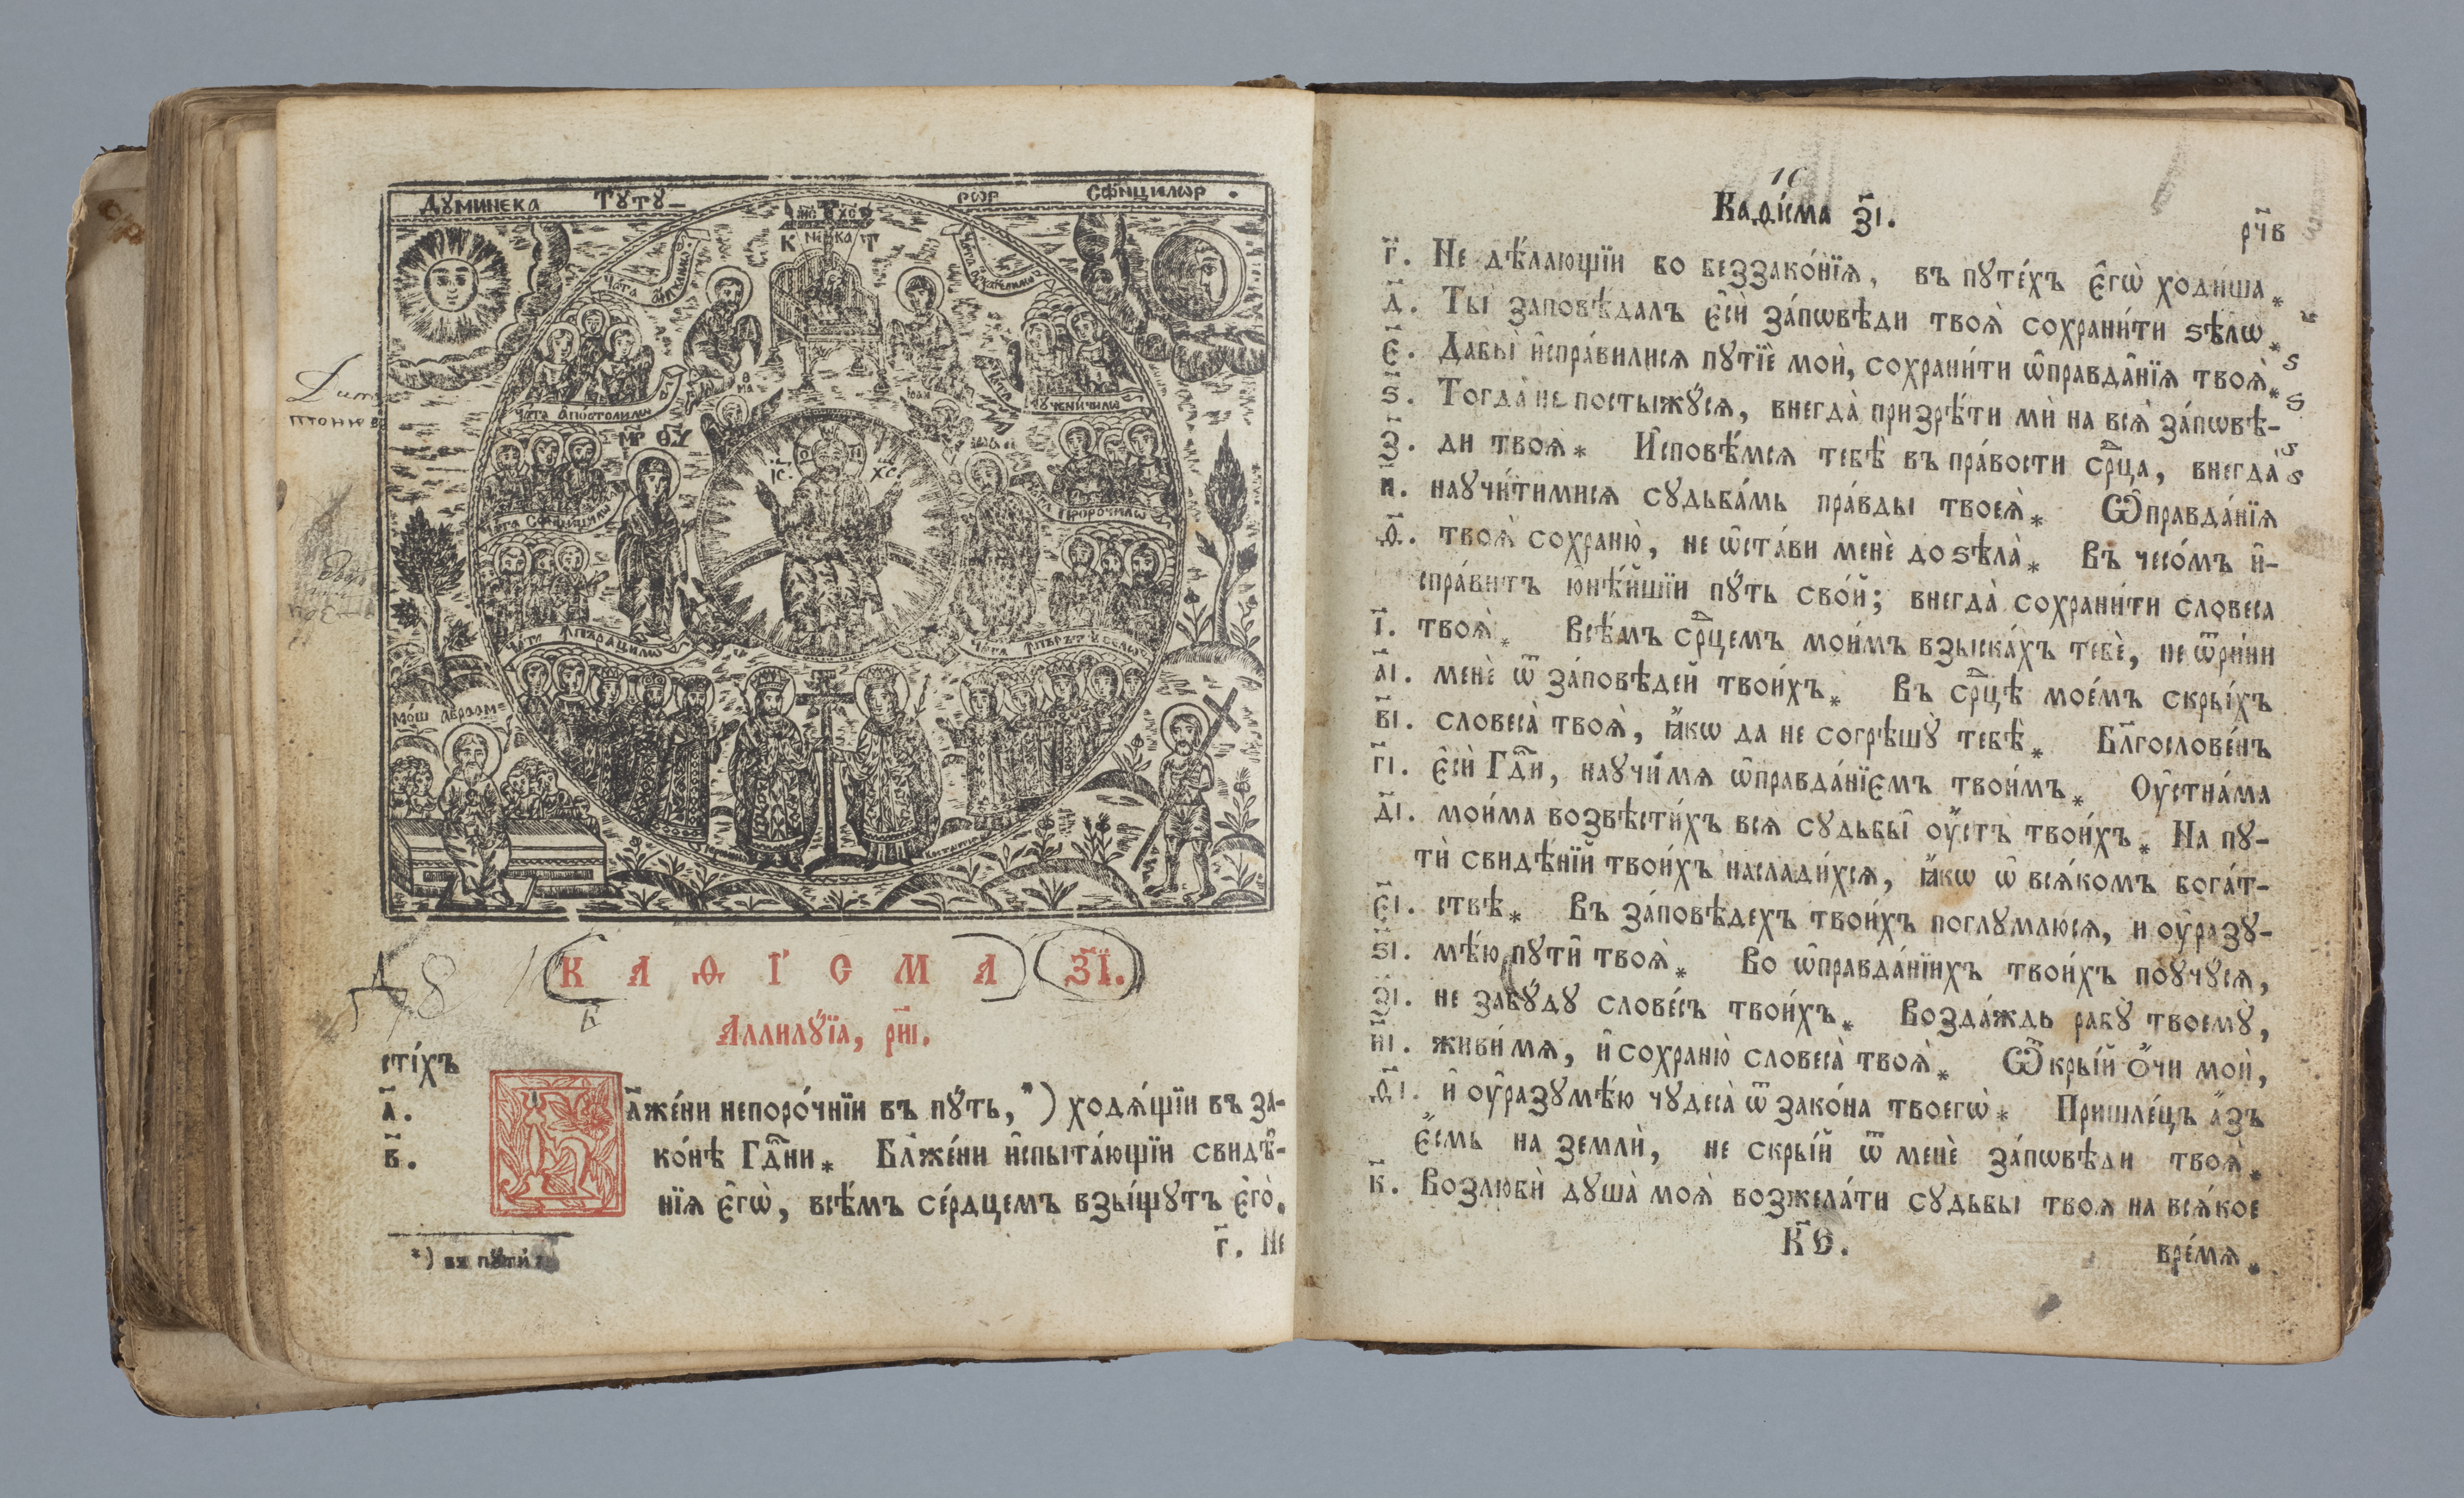 ДꙋМИНЕКА ТꙋТꙋ–РѠР СФ҃НЦИЛѠР
І҆С ХС
НИ КА
ЧАТА АПОСТОЛИЛѠ
ЧАТА ꙋЧЕНИЧИЛѠ
МР Ѳꙋ
ІС. ХС.
ЧАТА ПРОРОЧИЛѠ
ЧАТА
МО́Ш АВРААМ
К А Ѳ І С М А З҃І.
Аллилꙋ́їа, рн҃і.
стїхъ
а҃. Бл҃же́ни непоро́чнїи въ пꙋ́ть, *) ходѧ́щїи въ за-
в҃. ко́нѣ Гдⷭ҇ни * Бл҃же́ни и҆спыта́ющїи свидѣ̑-
нїѧ є҆гѡ̀, всѣ́мъ се́рдцемъ взы́щꙋтъ є҆го̀.
г҃. Не
*) въ пꙋти́
Каѳі́сма з҃і.
рч҃в
г҃. Не дѣ́лающїи бо беззако́нїѧ, въ пꙋте́хъ є҆гѡ̀ ходи́ша *
д҃. Ты̀ заповѣ́далъ є҆сѝ за́пѡвѣди твоѧ̀ сохрани́ти ѕѣлѡ̀ *
є҃. Дабы̀ и҆спра́вилисѧ пꙋтїѐ мои̑, сохрани́ти ѡ҆правда̑нїѧ твоѧ̀ *
ѕ҃. Тогда̀ не постыжꙋ́сѧ, внегда̀ призрѣ́ти мѝ на всѧ̀ за́пѡвѣ-
з҃. ди твоѧ̀ * И҆сповѣ́мсѧ тебѣ̀ въ пра́вости срⷣца, внегда̀
и҃. наꙋчи́тимисѧ сꙋдьба́мъ пра́вды твоеѧ̀ * Ѡ҆правда́нїѧ
ѳ҃. твоѧ̀ сохраню̀, не ѡ҆ста́ви менѐ до ѕѣла̀ * Въ чесо́мъ и҆-
спра́витъ ю҆нѣ́йшїи пꙋ́ть сво́й; внегда̀ сохрани́ти словеса
і҃. твоѧ̀ * Всѣ́мъ срⷣцемъ мои́мъ взыска́хъ тебѐ, не ѿри́ни
а҃і. менѐ ѿ за́повѣдей твои́хъ * Въ срⷣцѣ мое́мъ скры́хъ
в҃і. словеса̀ твоѧ̀, ꙗ҆́кѡ да не согрѣшꙋ̀ тебѣ̀ * Бл҃гослове́нъ
г҃і. є҆сѝ Гдⷭ҇и, наꙋчи́мѧ ѡ҆правда́нїємъ твои́мъ * Оу҆стна́ма
д҃і. мои́ма возвѣсти́хъ всѧ сꙋдьбы̑ оу҆́стъ твои́хъ * На пꙋ-
тѝ свидѣ́нїй твои́хъ наслади́хсѧ, ꙗ҆́кѡ ѡ҆ всѧ́комъ бога́т-
є҃і. ствѣ * Въ за́повѣдехъ твои́хъ поглꙋмлюсѧ, и оу҆разꙋ-
ѕ҃і. мѣ́ю пꙋти̑ твоѧ̀ * Во ѡ҆правда́нїихъ твои́хъ поꙋчꙋ́сѧ,
з҃і. не забꙋ́дꙋ слове́съ твои́хъ * Возда́ждь рабꙋ̀ твоемꙋ̀,
и҃і. живи́мѧ, и҆ сохраню̀ словеса̀ твоѧ̀ * Ѿкры́й ѻ҆́чи мои̑,
ѳ҃і. и҆ оу҆разꙋмѣ́ю чꙋдеса̀ ѿ зако́на твоегѡ̀ * Пришле́цъ а҆́зъ
є҆́смь на землѝ, не скры́й ѿ менѐ за́пѡвѣди твоѧ̀ *
к҃. Возлюбѝ дꙋша̀ моѧ̀ возжела́ти сꙋдьбы твоѧ на всѧ́кое
К҃Ѳ.
вре́мѧ *